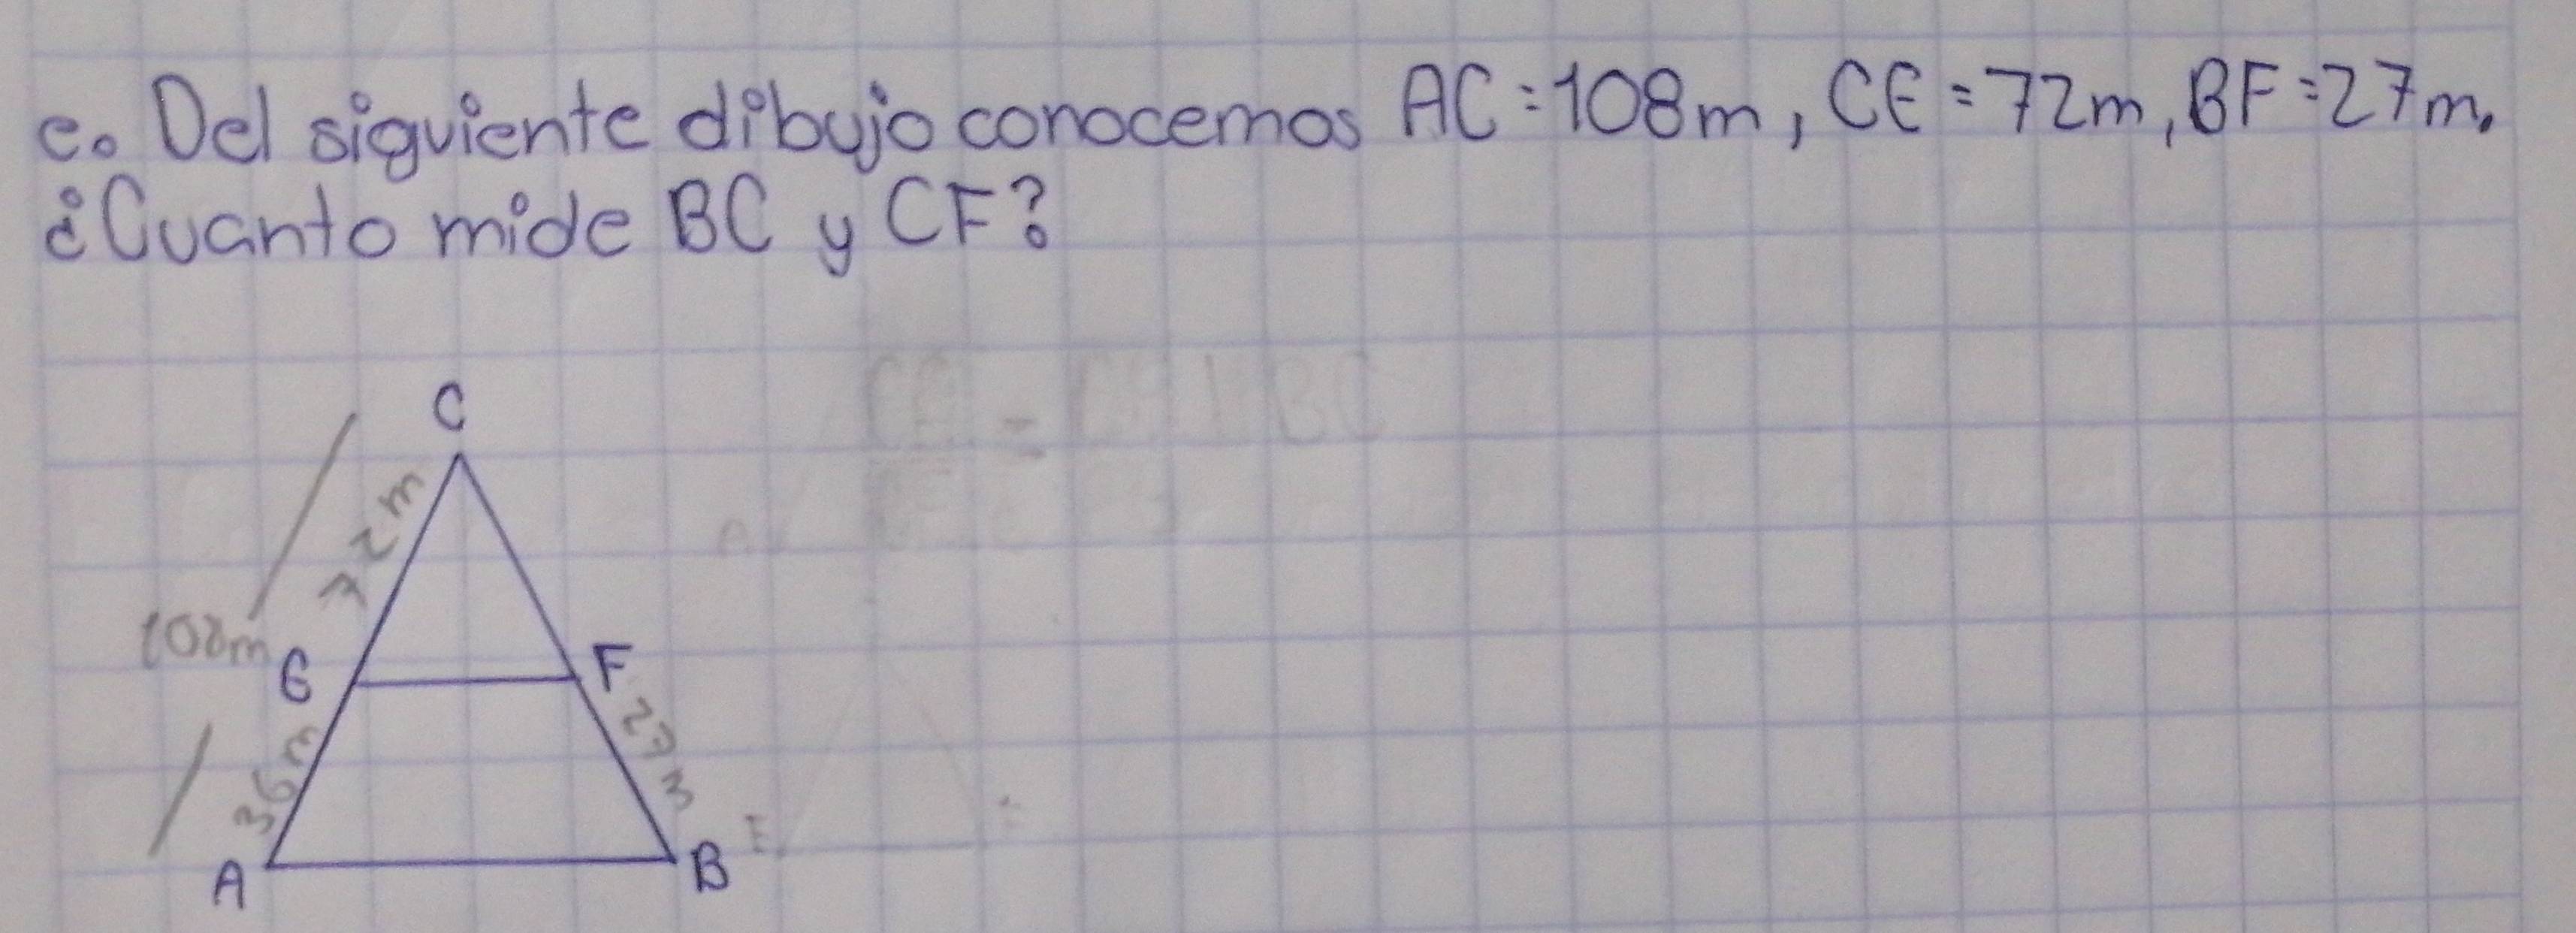 e. Del siguiente dibujo conocemos AC=108m, CE=72m, BF=27m.
¿Cuanto mide BC y CF?
C
72m
108m
E
F
27m
36m
A
B